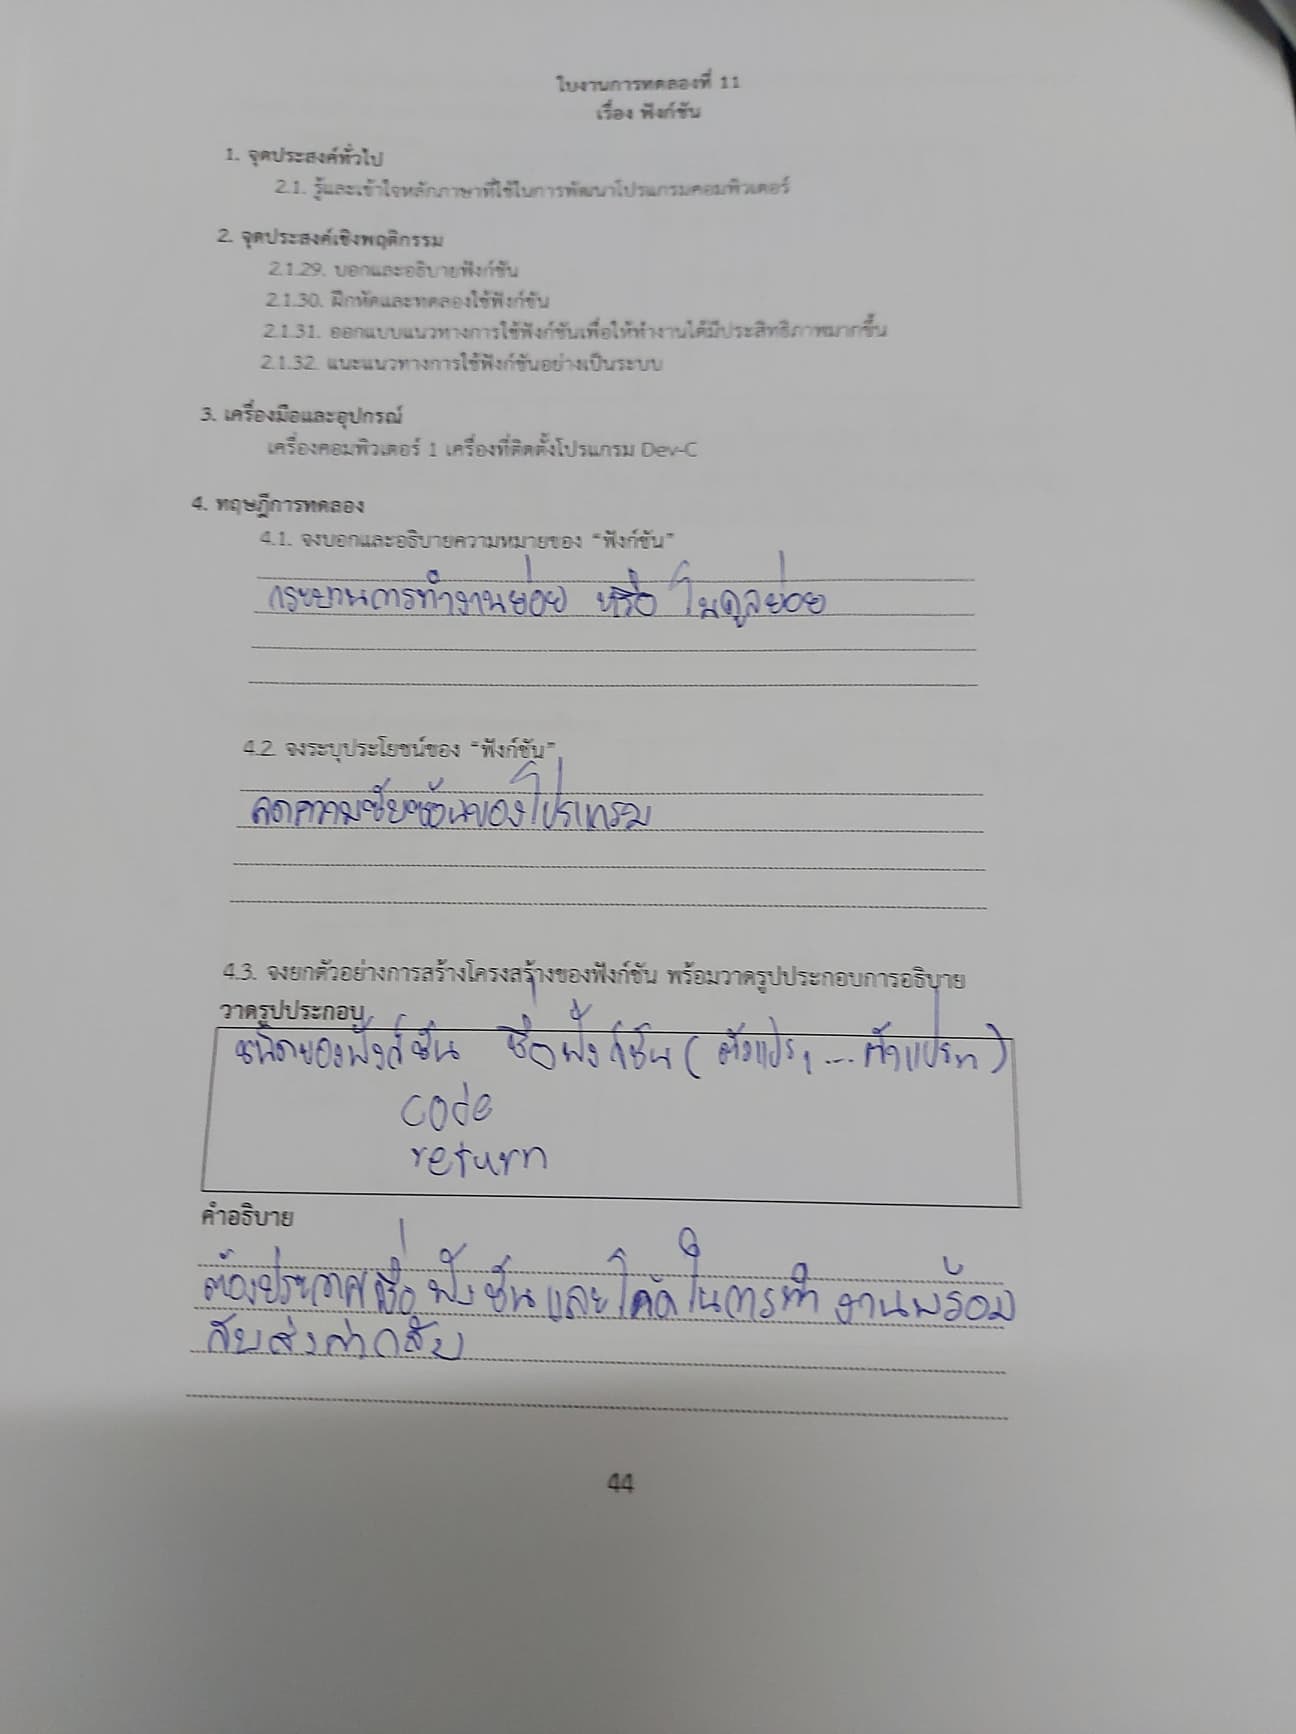 ใบงานการทดลองที่ 11
เรื่อง ฟังก์ชัน
1. จุดประสงค์ทั่วไป
2.1. รู้และเข้าใจหลักภาษาที่ใช้ในการพัฒนาโปรแกรมคอมพิวเตอร์
2. จุดประสงค์เชิงพฤติกรรม
2.1.29. บอกและอธิบายฟังก์ชัน
2.1.30. ฝึกหัดและทดลองใช้ฟังก์ชัน
2.1.31. ออกแบบแนวทางการใช้ฟังก์ชันเพื่อให้ทำงานได้มีประสิทธิภาพมากขึ้น
2.1.32. แนะแนวทางการใช้ฟังก์ชันอย่างเป็นระบบ
3. เครื่องมือและอุปกรณ์
เครื่องคอมพิวเตอร์ 1 เครื่องที่ติดตั้งโปรแกรม Dev-C
4. ทฤษฎีการทดลอง
4.1. จงบอกและอธิบายความหมายของ “ฟังก์ชัน”
กระบวนการทำงานย่อย หรือ โมดูลย่อย
4.2. จงระบุประโยชน์ของ “ฟังก์ชัน”
ลดความซับซ้อนของโปรแกรม
4.3. จงยกตัวอย่างการสร้างโครงสร้างของฟังก์ชัน พร้อมวาดรูปประกอบการอธิบาย
วาดรูปประกอบ
ชนิดของฟังก์ชัน ชื่อฟังก์ชัน ( ตัวแปร1 ... ตัวแปรn )
code
return
คำอธิบาย
ต้องประกาศชื่อ ฟังชันและโค้ดในการทำ งานพร้อม
กับส่งค่ากลับ
44